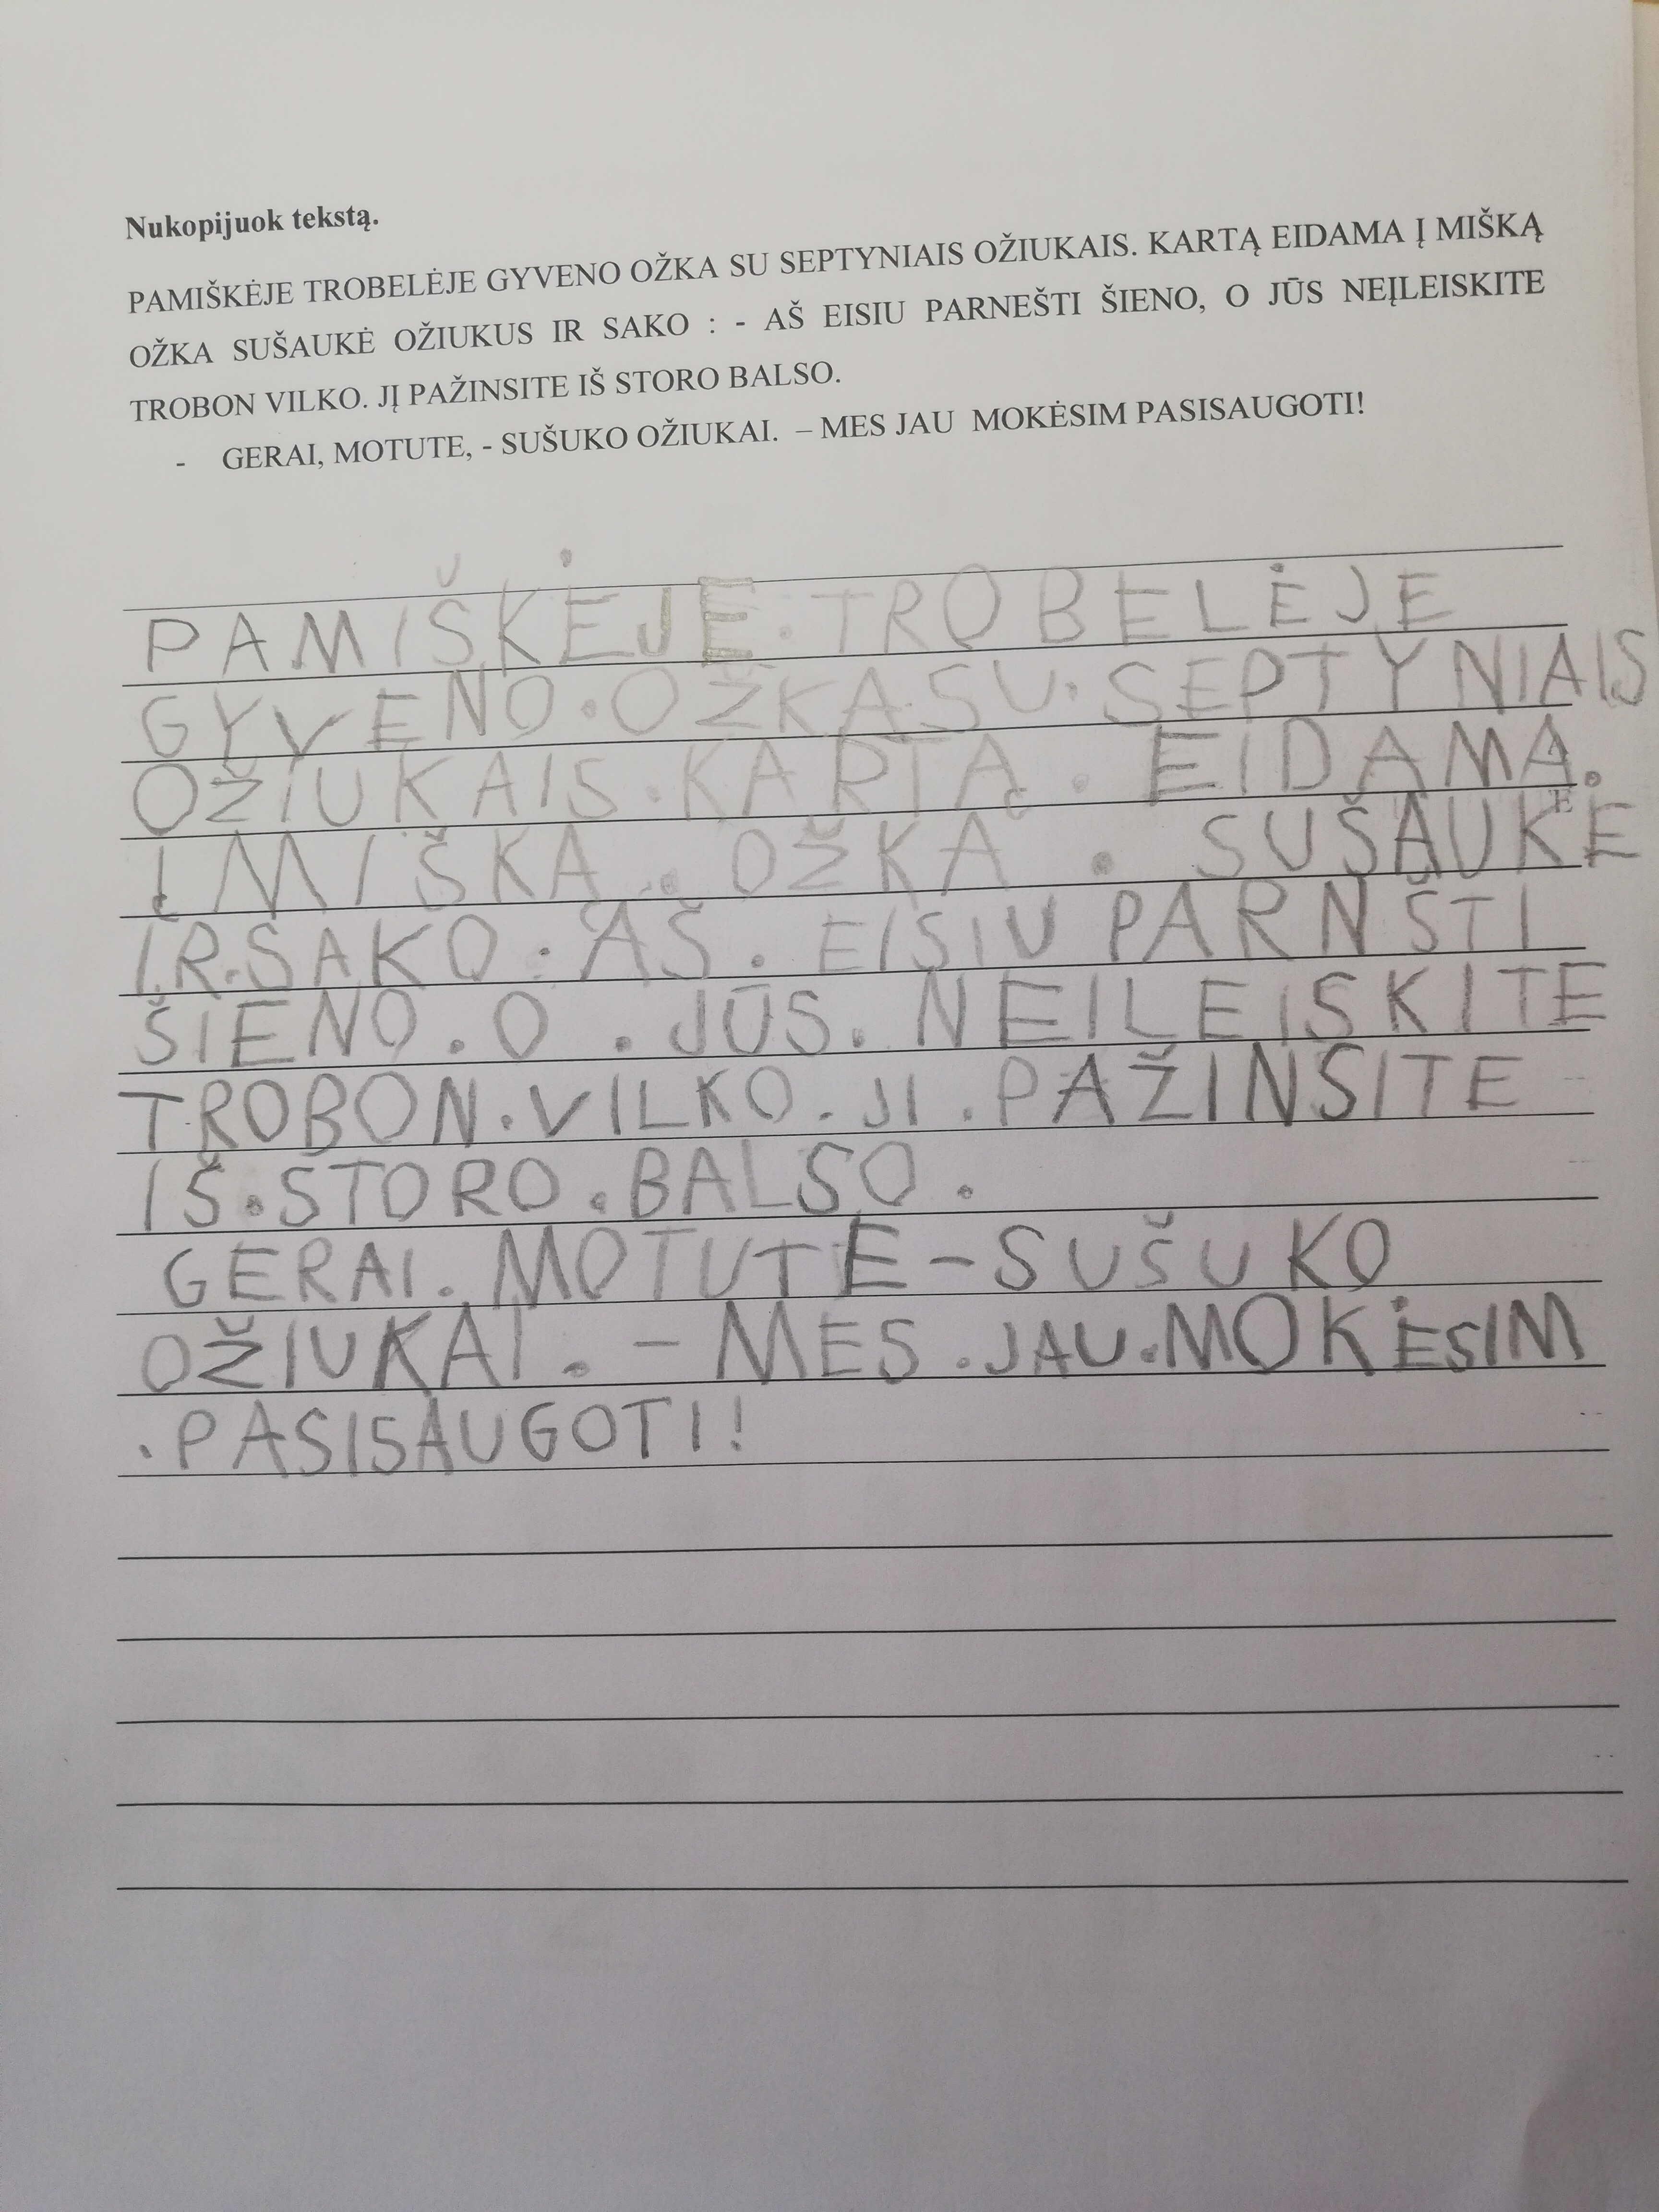 Nukopijuok tekstą.
PAMIŠKĖJE TROBELĖJE GYVENO OŽKA SU SEPTYNIAIS OŽIUKAIS. KARTĄ EIDAMA Į MIŠKĄ
OŽKA SUŠAUKĖ OŽIUKUS IR SAKO : - AŠ EISIU PARNEŠTI ŠIENO, O JŪS NEĮLEISKITE
TROBON VILKO. JĮ PAŽINSITE IŠ STORO BALSO.
- GERAI, MOTUTE, - SUŠUKO OŽIUKAI. – MES JAU MOKĖSIM PASISAUGOTI!
PAMIŠKĖJE.TROBELĖJE
GYVENO.OŽKA.SU.SEPTYNIAIS
OŽIUKAIS.KARTĄ.EIDAMA.
Į MIŠKĄ.OŽKA.SUŠAUKĖ
IR.SAKO:AŠ.EISIU PARNŠTI
ŠIENO.O.JŪS.NEILEISKITE
TROBON.VILKO.JI.PAŽINSITE
IŠ.STORO.BALSO.
GERAI.MOTUTE-SUŠUKO
OŽIUKAI.-MES.JAU.MOKĖSIM
.PASISAUGOTI!